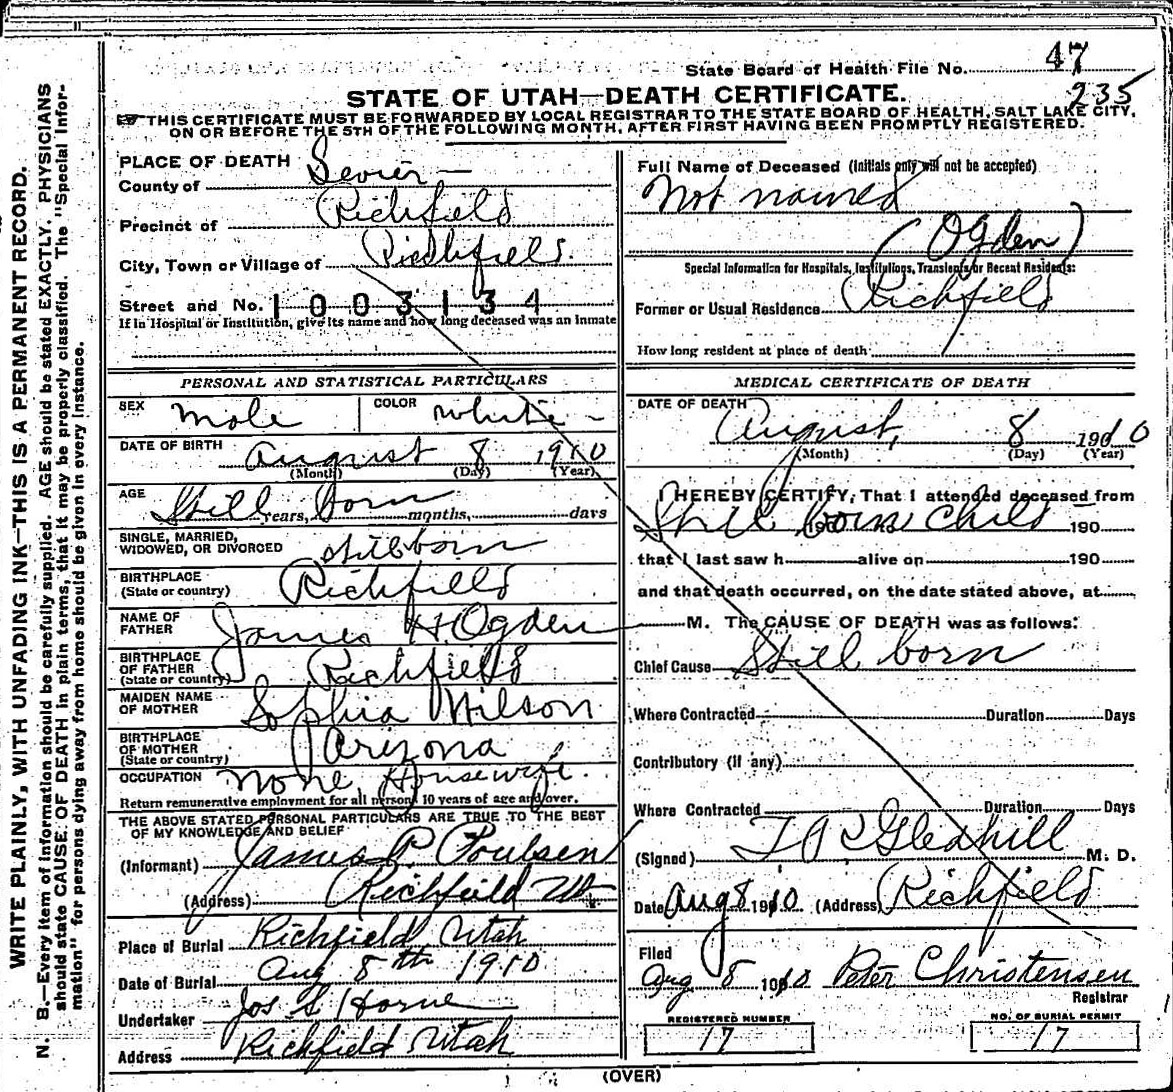 State Board of Health File No. 47
235
STATE OF UTAH—DEATH CERTIFICATE.
THIS CERTIFICATE MUST BE FORWARDED BY LOCAL REGISTRAR TO THE STATE BOARD OF HEALTH, SALT LAKE CITY,
ON OR BEFORE THE 5TH OF THE FOLLOWING MONTH, AFTER FIRST HAVING BEEN PROMPTLY REGISTERED.
WRITE PLAINLY, WITH UNFADING INK—THIS IS A PERMANENT RECORD.
N. B.—Every item of information should be carefully supplied. AGE should be stated EXACTLY. PHYSICIANS
should state CAUSE OF DEATH in plain terms, that it may be properly classified. The "Special Infor-
mation" for persons dying away from home should be given in every instance.
PLACE OF DEATH
County of Sevier
Precinct of Richfield
City, Town or Village of Richfield.
Street and No. 1003134
If in Hospital or Institution, give its name and how long deceased was an Inmate
PERSONAL AND STATISTICAL PARTICULARS
SEX Male COLOR White
DATE OF BIRTH August 8 1910
(Month) (Day) (Year)
AGE Still born years, months, days
SINGLE, MARRIED,
WIDOWED, OR DIVORCED stillborn
BIRTHPLACE
(State or country) Richfield
NAME OF
FATHER James H. Ogden
BIRTHPLACE
OF FATHER
(State or country) Richfield
MAIDEN NAME
OF MOTHER Sophia Wilson
BIRTHPLACE
OF MOTHER
(State or country) Arizona
OCCUPATION None, Housewife.
Return remunerative employment for all persons 10 years of age and over.
THE ABOVE STATED PERSONAL PARTICULARS ARE TRUE TO THE BEST
OF MY KNOWLEDGE AND BELIEF
(Informant) James P. Poulsen
(Address) Richfield Ut
Place of Burial Richfield, Utah
Date of Burial Aug 8th 1910
Undertaker Jos S Horne
Address Richfield Utah
Full Name of Deceased (Initials only will not be accepted)
Not named
(Ogden)
Special Information for Hospitals, Institutions, Transients or Recent Residents:
Former or Usual Residence Richfield
How long resident at place of death
MEDICAL CERTIFICATE OF DEATH
DATE OF DEATH
August, 8 1910
(Month) (Day) (Year)
I HEREBY CERTIFY, That I attended deceased from
Still born Child 190
that I last saw h alive on 190
and that death occurred, on the date stated above, at
M. The CAUSE OF DEATH was as follows:
Chief Cause Still born
Where Contracted Duration Days
Contributory (if any)
Where Contracted Duration Days
(Signed) Gledhill M. D.
Date Aug 8 1910 (Address) Richfield
Filed
Aug 8 1910 Peter Christensen
Registrar
REGISTERED NUMBER
17
NO. OF BURIAL PERMIT
17
(OVER)